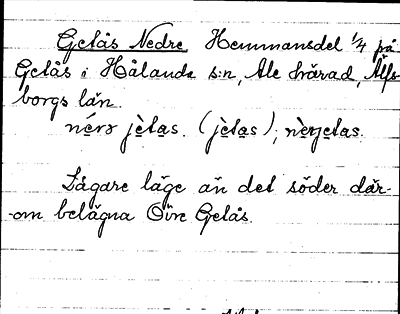 Getås Nedre Hemmansdel 1/4 på
Getås i Hålanda s:n, Ale härad, Älfs-
borgs län.
nérə jètas. (jètas); nèrjetas.
Lägare läge än det söder där-
om belägna Övre Getås.